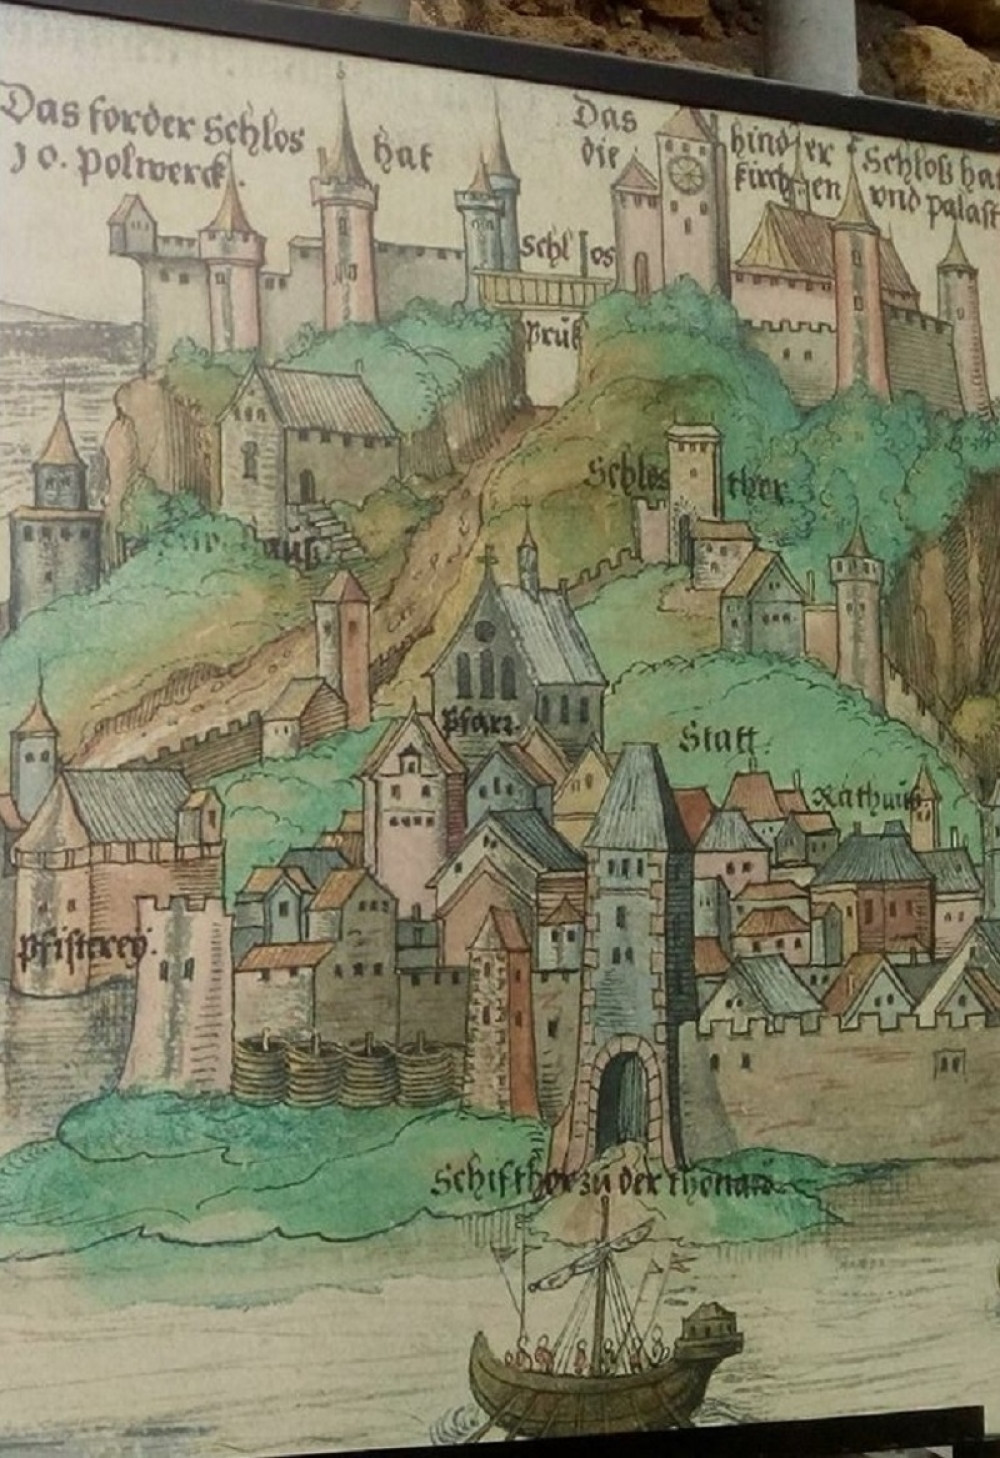 Das forder Schlos hat
10. polwerck.
Das hinder Schloß hat
die kirchen vnd palast
schlos
Prük
Schlos thor
Pfarr.
Statt.
Rathuus
Pfisterey.
Schifthor zu der thonaw